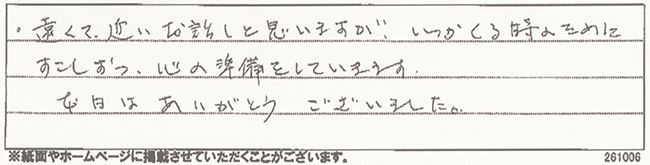 ・遠くて、近いお話しと思いますが、いつかくる時のために
すこしずつ、心の準備をしていきます。
本日はありがとうございました。
※紙面やホームページに掲載させていただくことがございます。 261006